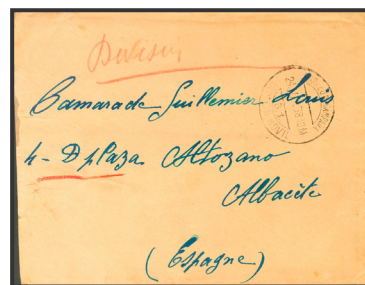 Camarade Guillemier Louis
4- D plaza Altozano
Albacète
(Espagne)